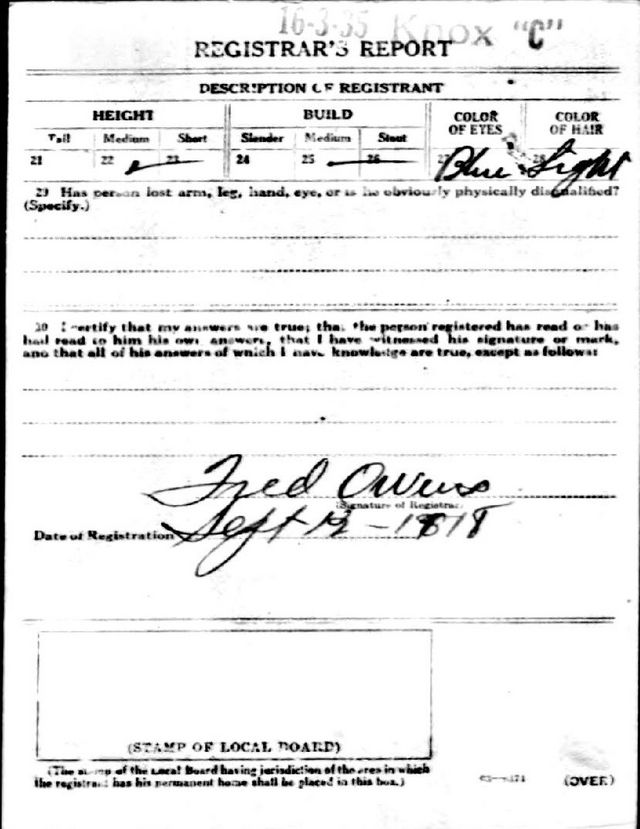 16-3-35 Knox "C"
REGISTRAR'S REPORT
DESCRIPTION OF REGISTRANT
HEIGHT BUILD COLOR OF EYES COLOR OF HAIR
Tall Medium Short Slender Medium Stout
21 22 23 24 25 26 27 Blue 28 Light
29 Has person lost arm, leg, hand, eye, or is he obviously physically disqualified?
(Specify.)
30 I certify that my answers are true; that the person registered has read or has
had read to him his own answers, that I have witnessed his signature or mark,
and that all of his answers of which I have knowledge are true, except as follows:
Fred Owens
(Signature of Registrar)
Date of Registration Sept 12 - 1918
(STAMP OF LOCAL BOARD)
(The stamp of the Local Board having jurisdiction of the area in which
the registrant has his permanent home shall be placed in this box.)
(OVER)